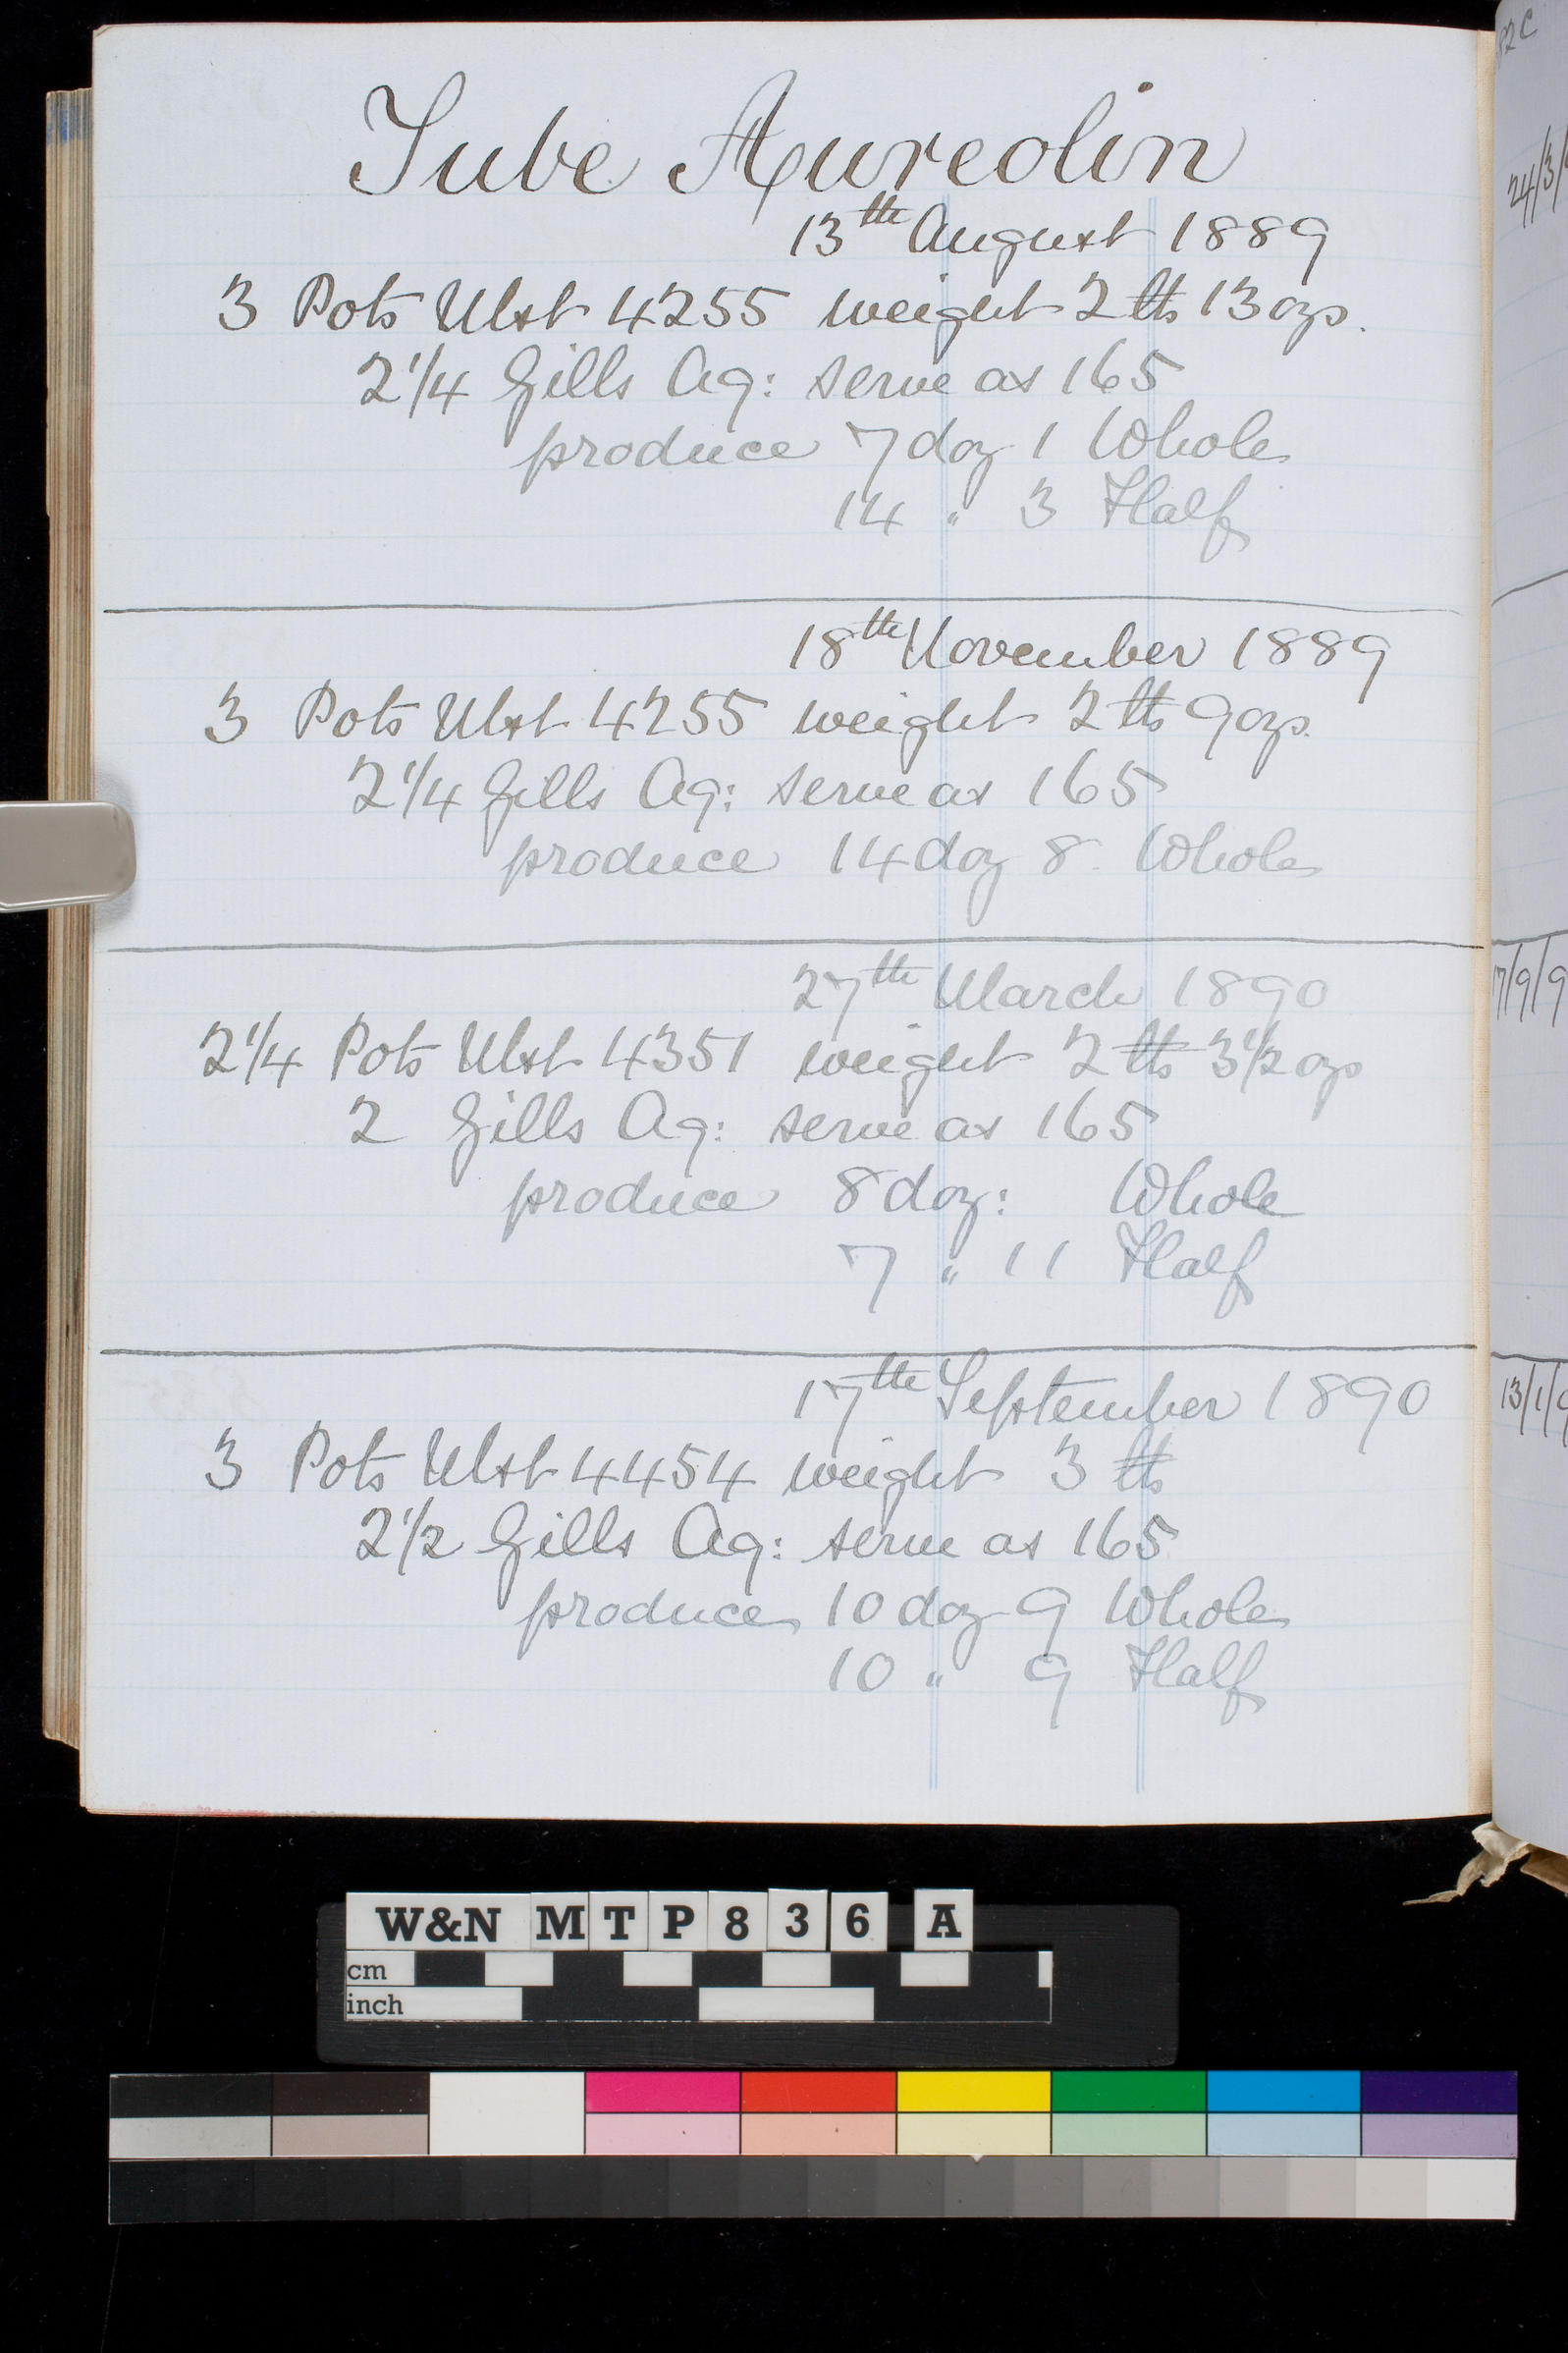 Tube Aureolin
13th August 1889
3 Pots Mxt 4255 weight 2 lbs 13 ozs.
2 1/4 Gills Aq: serve as 165
produce 7 doz 1 Whole
14 " 3 Half
18th November 1889
3 Pots Mxt 4255 weight 2 lbs 9 ozs.
2 1/4 Gills Aq: serve as 165
produce 14 doz 8 Whole
27th March 1890
2 1/4 Pots Mxt 4351 weight 2 lbs 3 1/2 ozs
2 Gills Aq: serve as 165
produce 8 doz: Whole
7 " 11 Half
17th September 1890
3 Pots Mxt 4454 weight 3 lbs
2 1/2 Gills Aq: serve as 165
produce 10 doz 9 Whole
10 " 9 Half
82C
24/3/
7/9/9
13/1/9
W&N MTP836 A
cm
inch